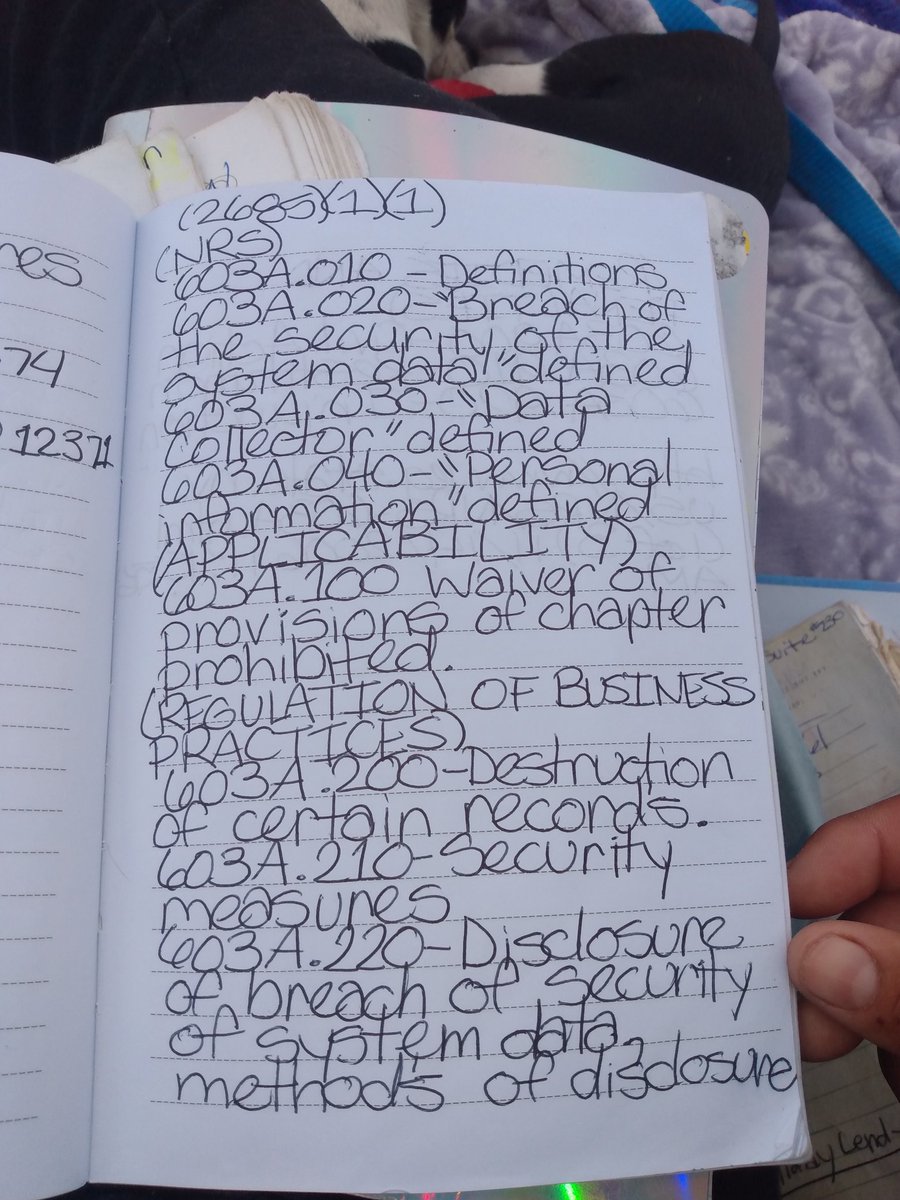 (2685)(1)(1)
(NRS)
603A.010 - Definitions
603A.020-"Breach of
the security of the
system data" defined
603A.030-"Data
Collector" defined
603A.040-"Personal
information" defined
(APPLICABILITY)
603A.100 Waiver of
provisions of chapter
prohibited.
(REGULATION OF BUSINESS
PRACTICES)
603A.200-Destruction
of certain records.
603A.210-Security
measures
603A.220-Disclosure
of breach of security
of system data,
methods of disclosure
res
74
12371
Suite #230